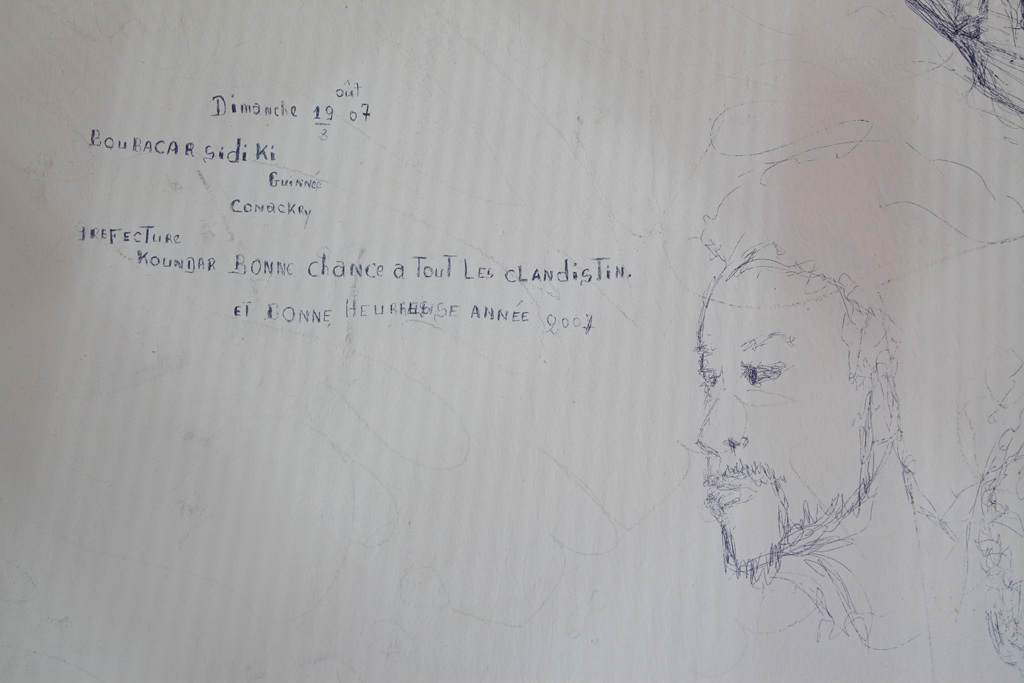 oût
Dimanche 19 07
8
BOUBACAR sidi Ki
GUINNÉE
CONACKRY
PREFECTURE
KOUNDAR BONNE chance a TOUT LES CLANDISTIN.
ET BONNE HEUREUSE ANNÉE 2007